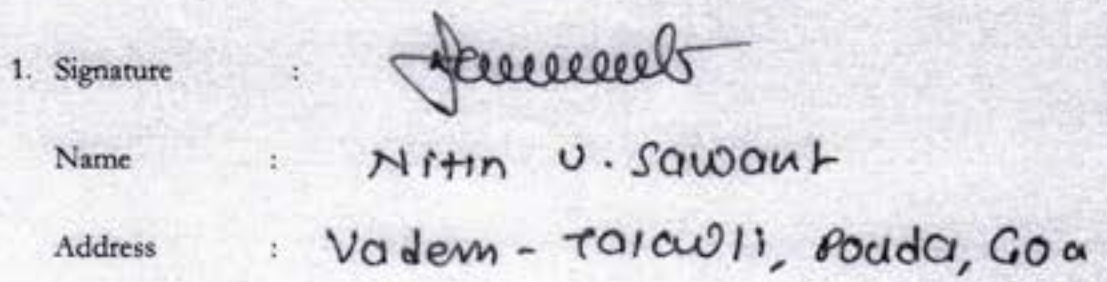 1. Signature :
Name : Nitin U. Sawant
Address : Vadem - Talawli, Ponda, Goa